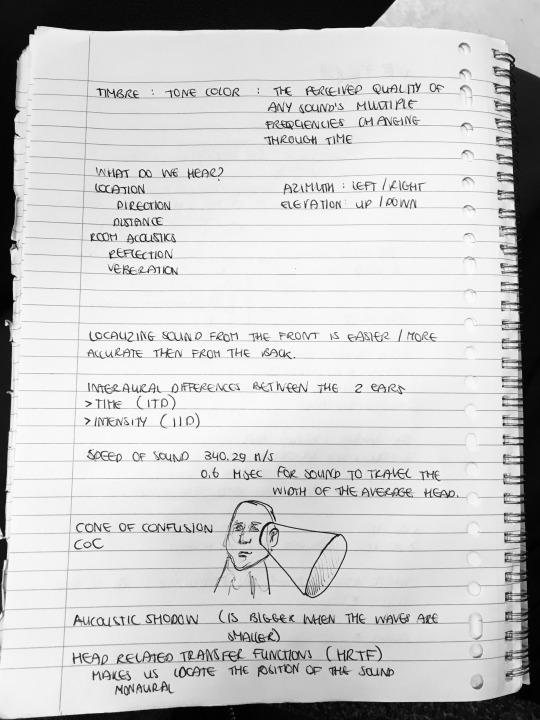 TIMBRE : TONE COLOR : THE PERCEIVED QUALITY OF
ANY SOUND'S MULTIPLE
FREQUENCIES CHANGING
THROUGH TIME
WHAT DO WE HEAR?
LOCATION
AZIMUTH : LEFT / RIGHT
DIRECTION
ELEVATION : UP / DOWN
DISTANCE
ROOM ACOUSTICS
REFLECTION
VERBERATION
LOCALIZING SOUND FROM THE FRONT IS EASIER / MORE
ACCURATE THEN FROM THE BACK.
INTERAURAL DIFFERENCES BETWEEN THE 2 EARS
> TIME (ITD)
> INTENSITY (IID)
SPEED OF SOUND 340.29 M/S
0.6 MSEC FOR SOUND TO TRAVEL THE
WIDTH OF THE AVERAGE HEAD.
CONE OF CONFUSION
COC
AUCOUSTIC SHADOW (IS BIGGER WHEN THE WAVES ARE
SMALLER)
HEAD RELATED TRANSFER FUNCTIONS (HRTF)
MAKES US LOCATE THE POSITION OF THE SOUND
MONAURAL